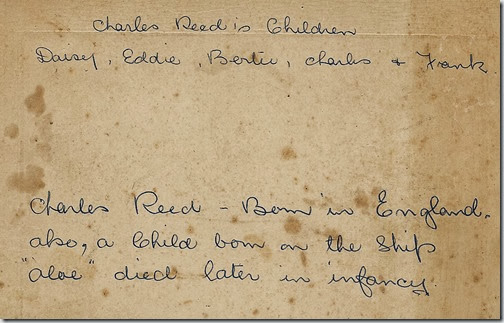 Charles Reed's Children
Daisey, Eddie, Bertie, Charles + Frank
Charles Reed - Born in England.
also, a Child born on the Ship
"aloe" died later in infancy.